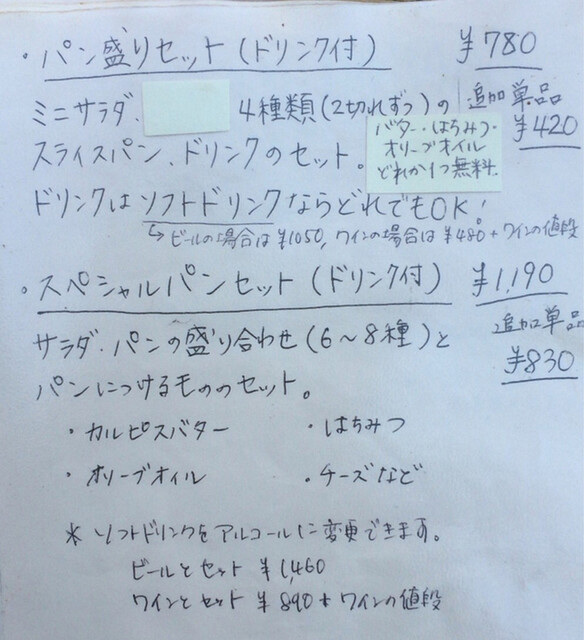 ・パン盛りセット(ドリンク付) ¥780
ミニサラダ、 4種類(2切れずつ)の
追加単品
¥420
スライスパン、ドリンクのセット。
バター・はちみつ・
オリーブオイル
どれか1つ無料。
ドリンクはソフトドリンクならどれでもOK!
↳ビールの場合は¥1050, ワインの場合は¥480+ワインの値段
・スペシャルパンセット(ドリンク付) ¥1,190
追加単品
¥830
サラダ、パンの盛り合わせ(6〜8種)と
パンにつけるもののセット。
・カルピスバター ・はちみつ
・オリーブオイル ・チーズなど
＊ソフトドリンクをアルコールに変更できます。
ビールとセット ¥1,460
ワインとセット ¥890+ワインの値段